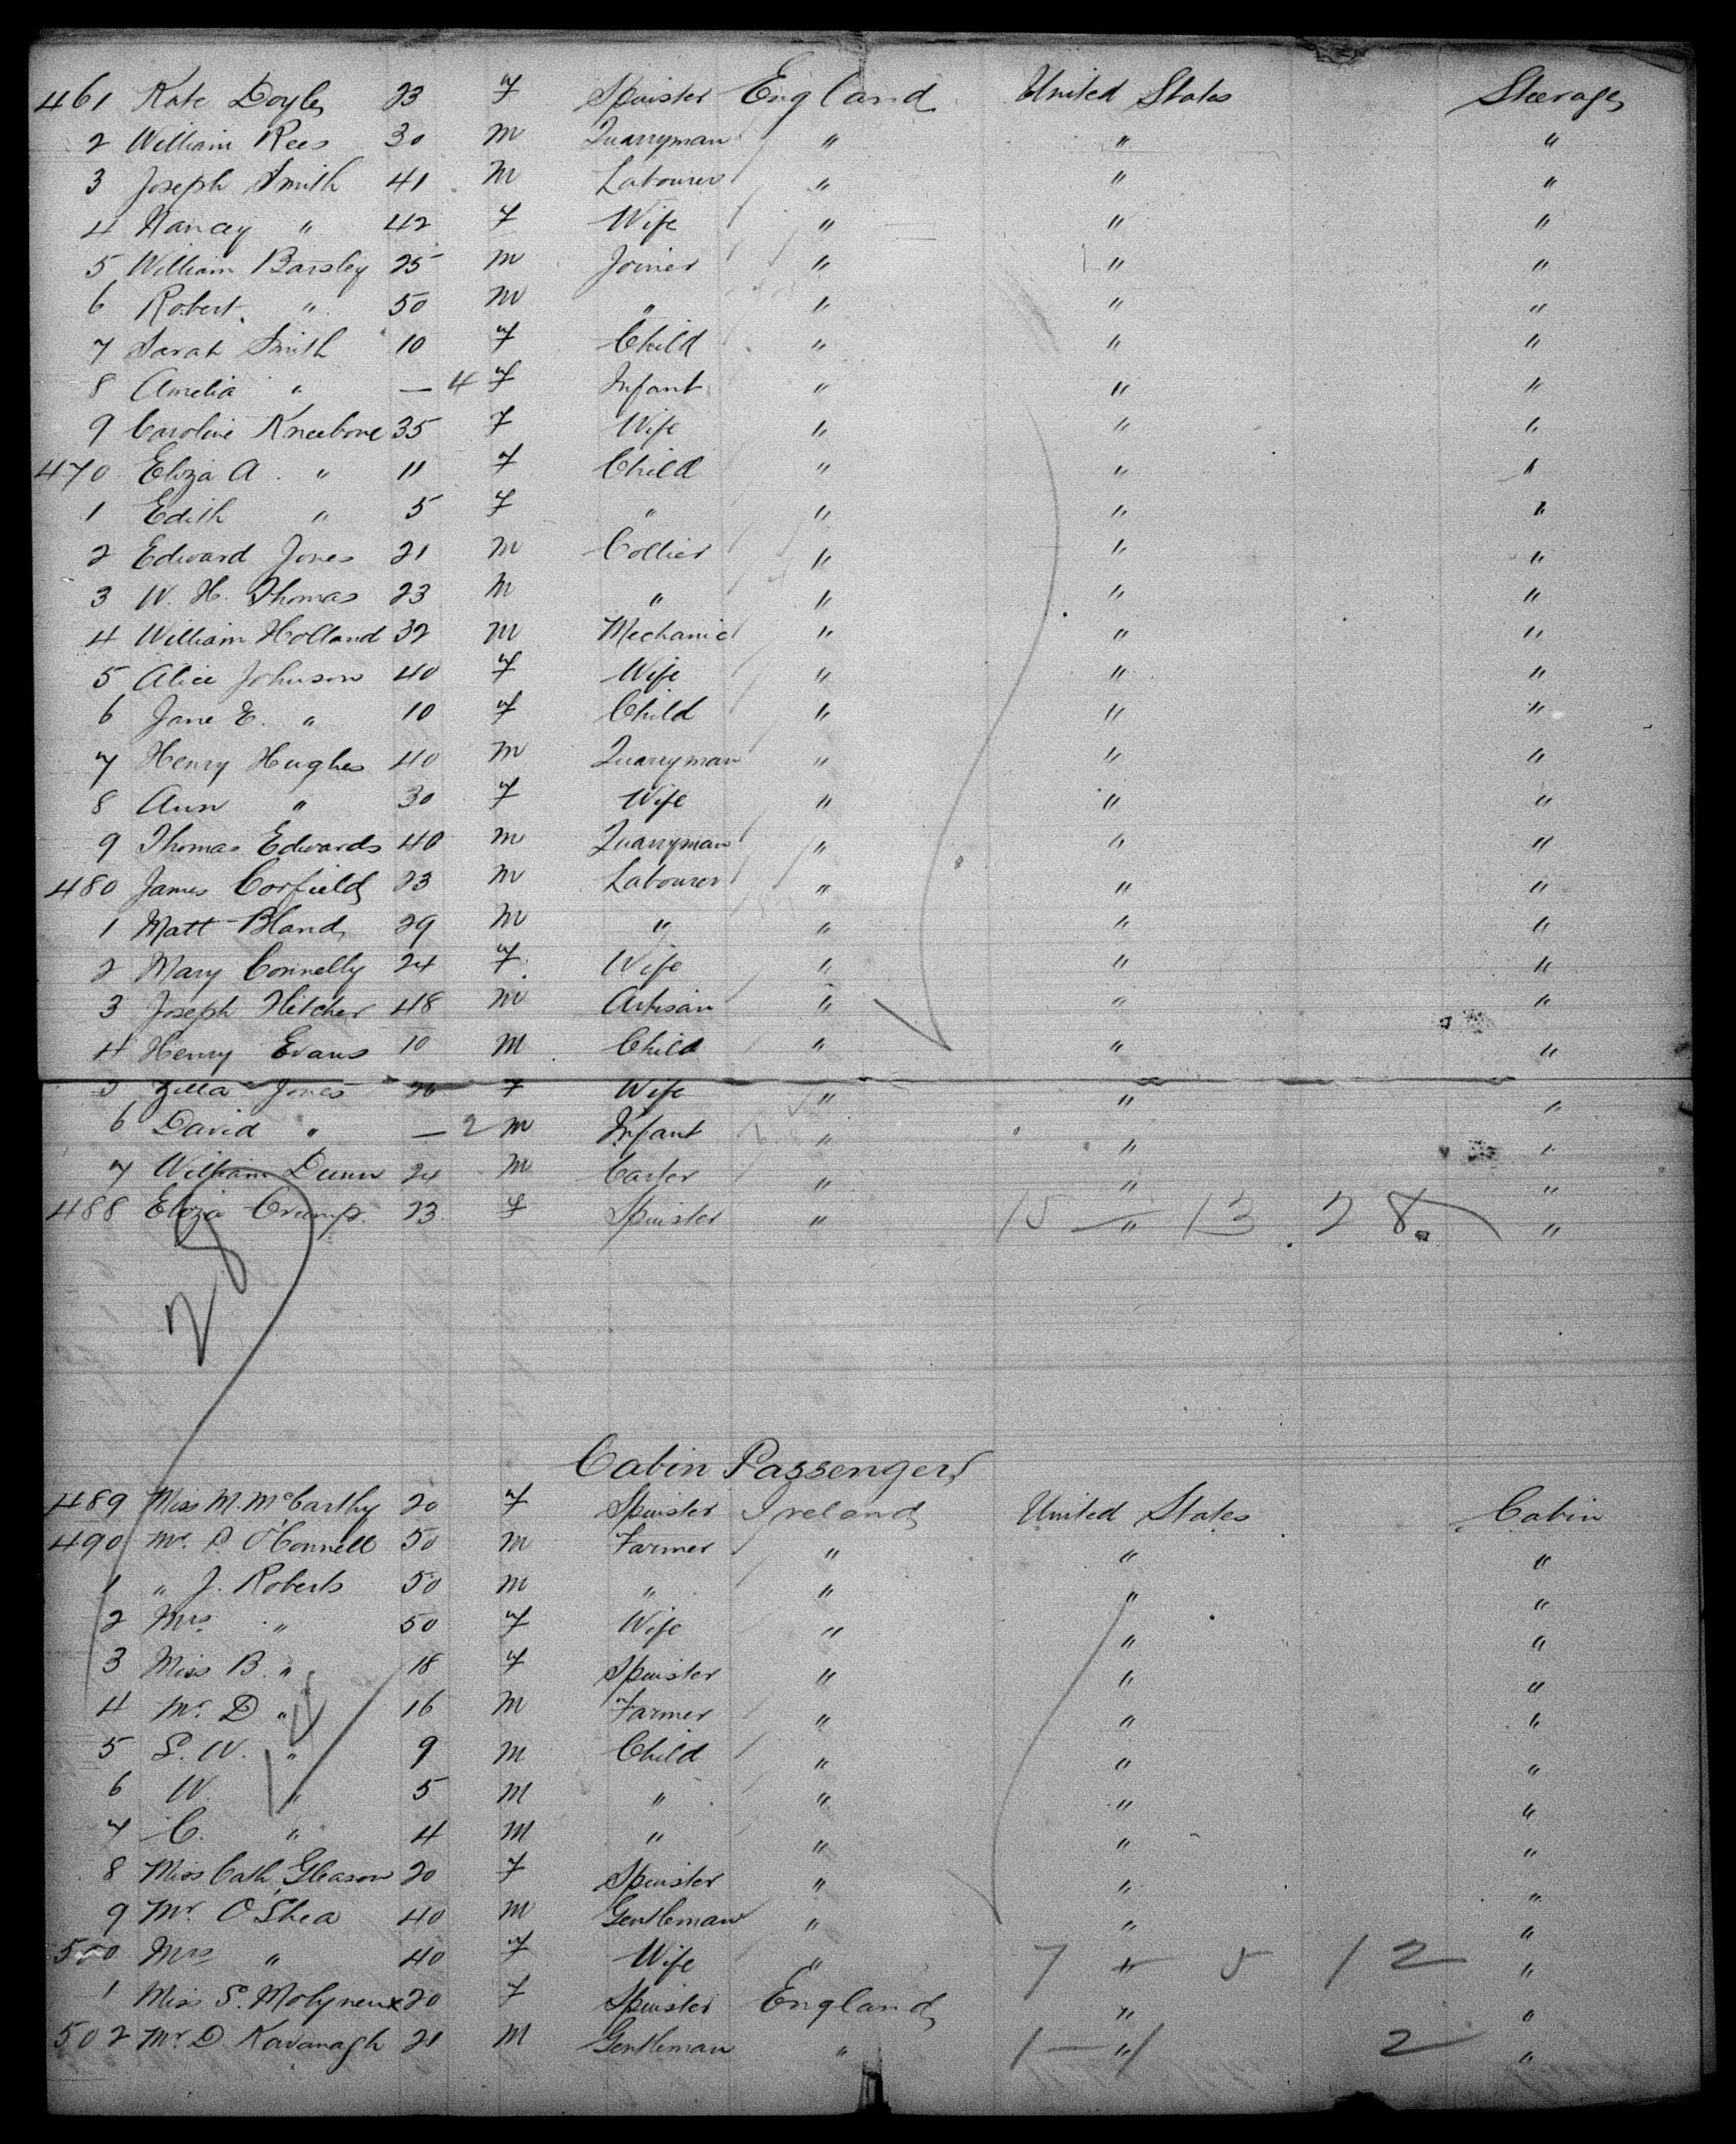 461 Kate Doyle 23 f Spinster England United States Steerage
2 William Rees 30 m Quarryman " " "
3 Joseph Smith 41 m Labourer " " "
4 Nancy " 42 f Wife " " "
5 William Barsley 25 m Joiner " " "
6 Robert " 50 m " " " "
7 Sarah Smith 10 f Child " " "
8 Amelia " — 4 f Infant " " "
9 Caroline Kneebone 35 f Wife " " "
470 Eliza A. " 11 f Child " " "
1 Edith " 5 f " " " "
2 Edward Jones 21 m Collier " " "
3 W. H. Thomas 23 m " " " "
4 William Holland 32 m Mechanic " " "
5 Alice Johnson 40 f Wife " " "
6 Jane E. " 10 f Child " " "
7 Henry Hughes 40 m Quarryman " " "
8 Ann " 30 f Wife " " "
9 Thomas Edwards 40 m Quarryman " " "
480 James Corfield 23 m Labourer " " "
1 Matt Bland 29 m " " " "
2 Mary Connelly 24 f Wife " " "
3 Joseph Hitcher 48 m Artisan " " "
4 Henry Evans 10 m Child " " "
5 Zilla Jones 26 f Wife " " "
6 David " — 2 m Infant " " "
7 William Dunn 24 m Carter " " "
488 Eliza Crump 23 f Spinster " " "
15 — 13 28
28
Cabin Passengers
489 Miss M. McCarthy 20 f Spinster Ireland United States Cabin
490 Mr. P. O'Connell 50 m Farmer " " "
1 " J. Roberts 50 m " " " "
2 Mrs. " 50 f Wife " " "
3 Miss B. " 18 f Spinster " " "
4 Mr. D " 16 m Farmer " " "
5 S. W. " 9 m Child " " "
6 W. " 5 m " " " "
7 C. " 4 m " " " "
8 Miss Cath. Gleason 20 f Spinster " " "
9 Mr. O'Shea 40 m Gentleman " " "
500 Mrs " 40 f Wife " " "
7 5 12
1 Miss S. Molyneux 20 f Spinster England " "
502 Mr. D. Kavanagh 21 m Gentleman " " "
1 — 1 2
14